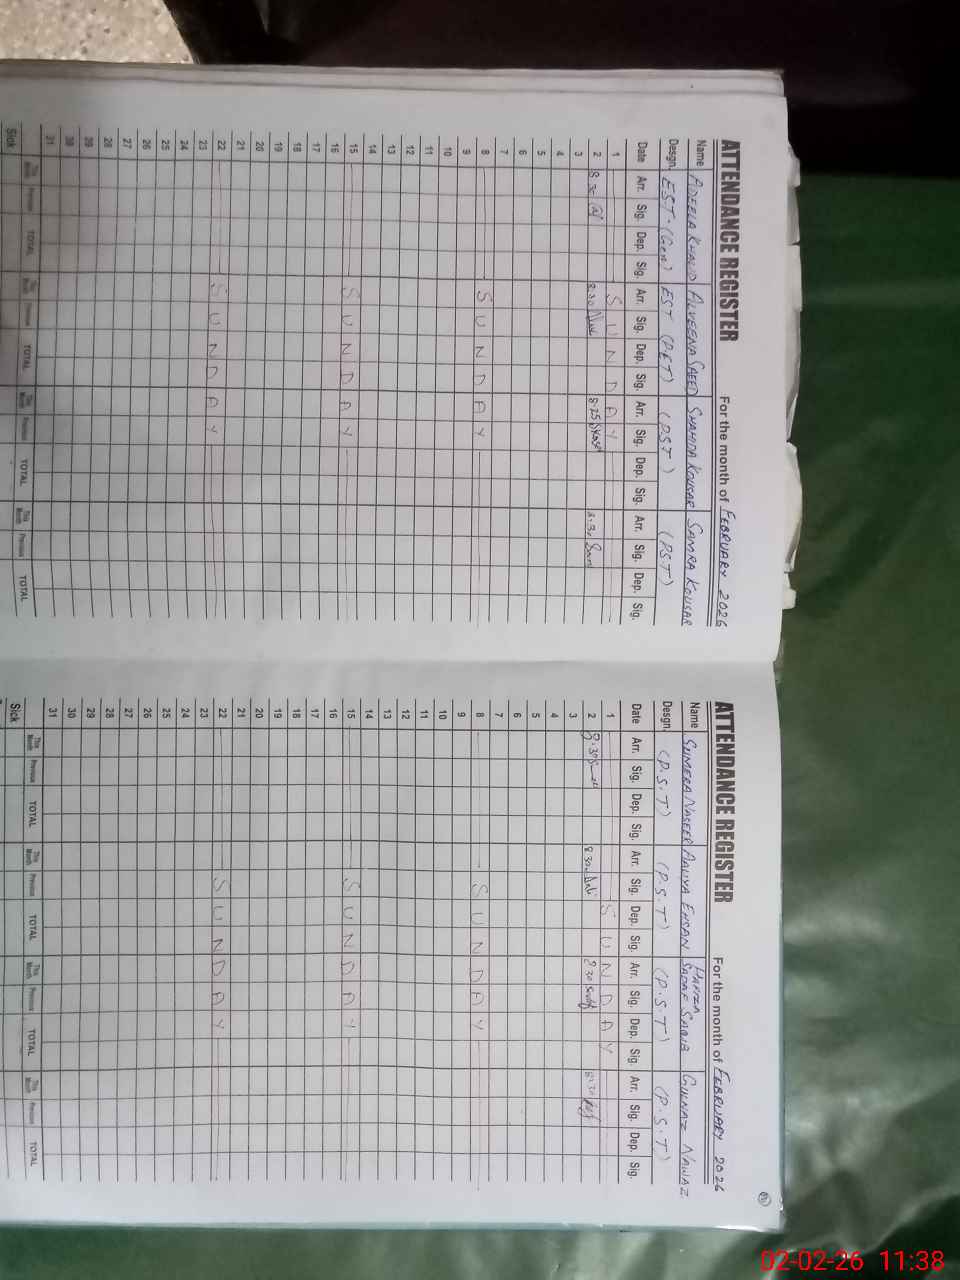 ATTENDANCE REGISTER For the month of FEBRUARY 2026
Name ADEELA KHALID ALVEENA SAEED SHAHIDA KOUSAR SAMRA KOUSAR
Desgn. EST-(Gen) EST (PET) (PST) (P.S.T)
Date Arr. Sig. Dep. Sig. Arr. Sig. Dep. Sig. Arr. Sig. Dep. Sig. Arr. Sig. Dep. Sig.
1 SUNDAY
2 8.30 8.30 8.25 8.30
3
4
5
6
7
8 SUNDAY
9
10
11
12
13
14
15 SUNDAY
16
17
18
19
20
21
22 SUNDAY
23
24
25
26
27
28
29
30
31
This Month Previous TOTAL This Month Previous TOTAL This Month Previous TOTAL This Month Previous TOTAL
Sick
ATTENDANCE REGISTER For the month of FEBRUARY 2026
Name SUMERA NASEER AALIYA EHSAN HAFIZA SADAF SABIR GULNAZ NAWAZ
Desgn. (P.S.T) (P.S.T) (P.S.T) (P.S.T)
Date Arr. Sig. Dep. Sig. Arr. Sig. Dep. Sig. Arr. Sig. Dep. Sig. Arr. Sig. Dep. Sig.
1 SUNDAY
2 8.30 8.30 8.30 8.30
3
4
5
6
7
8 SUNDAY
9
10
11
12
13
14
15 SUNDAY
16
17
18
19
20
21
22 SUNDAY
23
24
25
26
27
28
29
30
31
This Month Previous TOTAL This Month Previous TOTAL This Month Previous TOTAL This Month Previous TOTAL
Sick
02-02-26 11:38